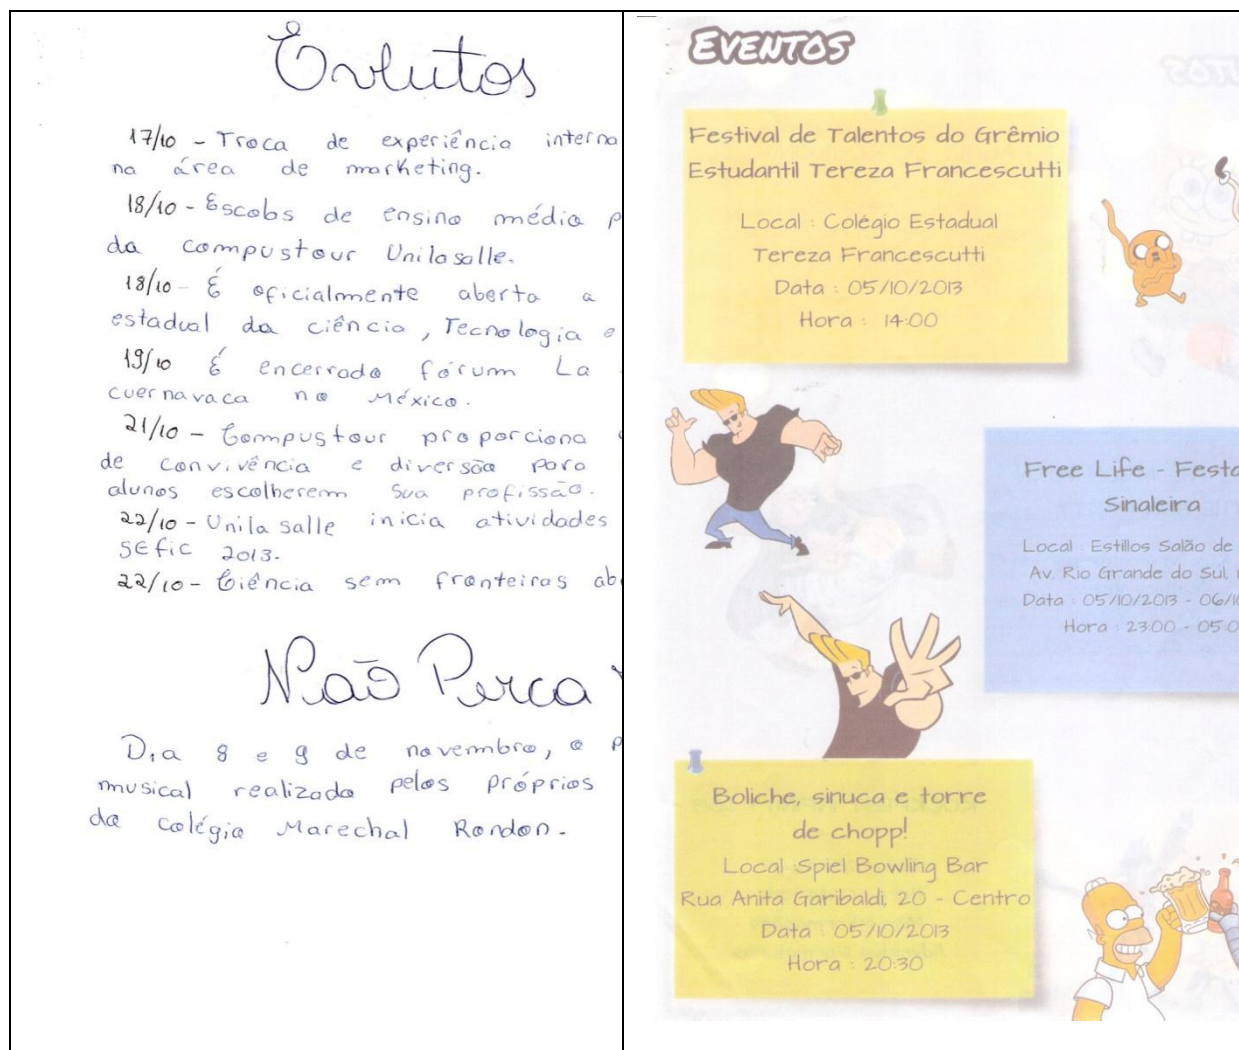 Eventos
17/10 - Troca de experiência interna
na área de marketing.
18/10 - Escolas de ensino médio p
da compustour Unilasalle.
18/10 - É oficialmente aberta a
estadual da ciência, Tecnologia e
19/10 É encerrado fórum La
cuernavaca no México.
21/10 - Compustour proporciona
de convivência e diversão para
alunos escolherem sua profissão.
22/10 - Unilasalle inicia atividades
SEfic 2013.
22/10 - Ciência sem fronteiras ab
Não Perca
Dia 8 e 9 de novembro, o p
musical realizado pelos próprios
do colégio Marechal Rondon.
EVENTOS
Festival de Talentos do Grêmio
Estudantil Tereza Francescutti
Local : Colégio Estadual
Tereza Francescutti
Data : 05/10/2013
Hora : 14:00
Free Life - Festa
Sinaleira
Local : Estillos Salão de
Av. Rio Grande do Sul,
Data : 05/10/2013 - 06/10
Hora : 23:00 - 05:0
Boliche, sinuca e torre
de chopp!
Local :Spiel Bowling Bar
Rua Anita Garibaldi, 20 - Centro
Data : 05/10/2013
Hora : 20:30